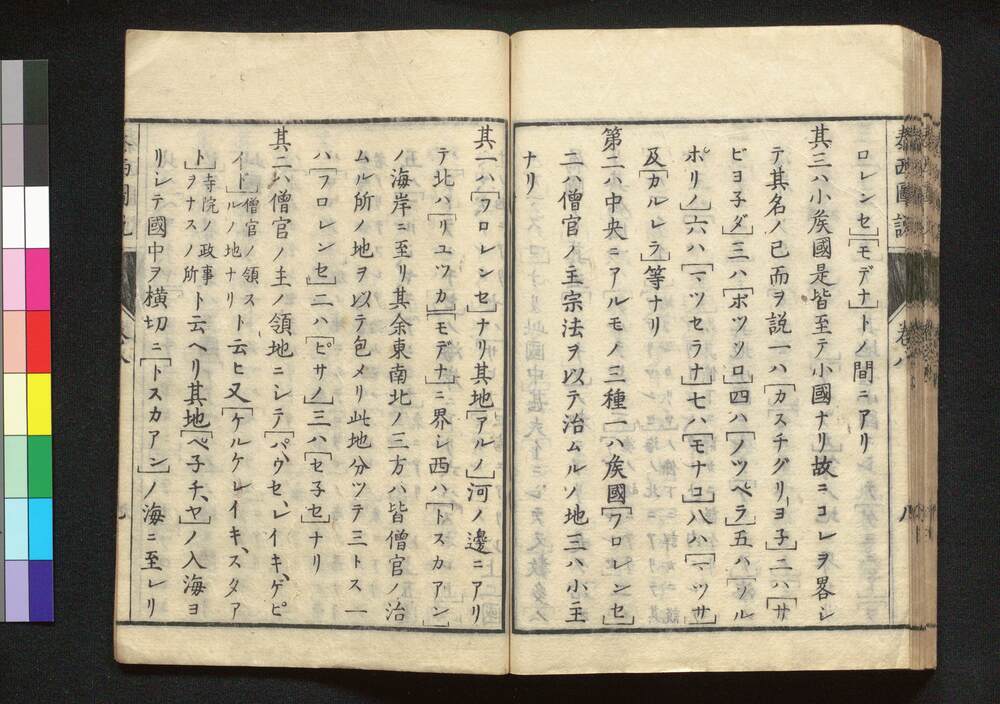 泰西圖説 卷八 八
ロレンセ」「モデナ」トノ間ニアリ
其三ハ小矦國是皆至テ小國ナリ故ニコレヲ畧シ
テ其名ノ已而ヲ説一ハ「カスチグリ、ヨ子」二ハ「サ
ビヨ子ダ」三ハ「ボツソロ」四ハ「ノツペラ」五ハ「ソル
ポリノ」六ハ「マツセラナ」七ハ「モナコ」八ハ「マツサ」
及「カルレラ」等ナリ
第二ハ中央ニアルモノ三種一ハ矦國「フロレンセ」
二ハ僧官ノ主宗法ヲ以テ治ムルソ地三ハ小主
ナリ
其一ハ「フロレンセ」ナリ其地「アルノ」河ノ邊ニアリ
テ北ハ「リユツカ」「モデナ」ニ界シ西ハ「トスカアン」
ノ海岸ニ至リ其余東南北ノ三方ハ皆僧官ノ治
ムル所ノ地ヲ以テ包メリ此地分ツテ三トス一
ハ「フロレンセ」二ハ「ピサノ」三ハ「セ子セ」ナリ
其二ハ僧官ノ主ノ領地ニシテ「パウセ、レイキ、ゲビ
イド」僧官ノ領スルノ地ナリト云ヒ又「ケルケレイキ、スタア
ト」寺院ノ政事ヲナスノ所ト云ヘリ其地「ペ子チ、ヤ」ノ入海ヨ
リシテ國中ヲ横切ニ「トスカアン」ノ海ニ至レリ